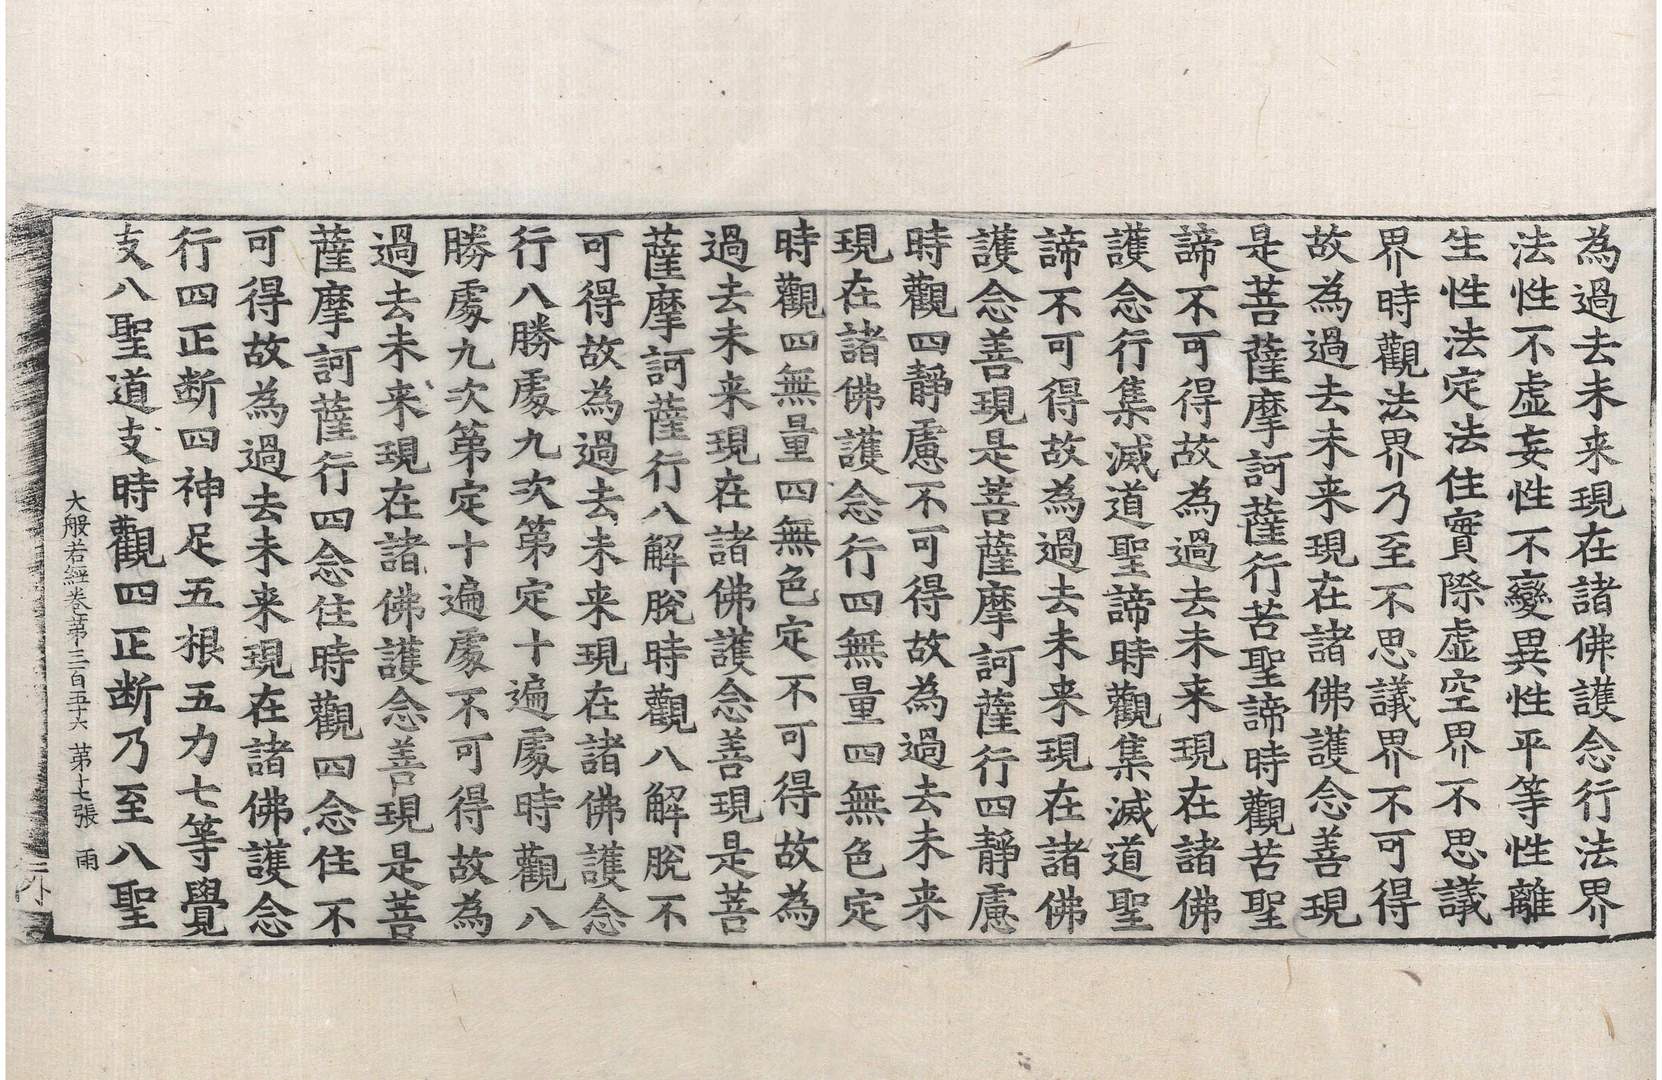 為過去未来現在諸佛護念行法界
法性不虛妄性不變異性平等性離
生性法定法住實際虛空界不思議
界時觀法界乃至不思議界不可得
故為過去未来現在諸佛護念善現
是菩薩摩訶薩行苦聖諦時觀苦聖
諦不可得故為過去未来現在諸佛
護念行集滅道聖諦時觀集滅道聖
諦不可得故為過去未来現在諸佛
護念善現是菩薩摩訶薩行四靜慮
時觀四靜慮不可得故為過去未来
現在諸佛護念行四無量四無色定
時觀四無量四無色定不可得故為
過去未来現在諸佛護念善現是菩
薩摩訶薩行八解脫時觀八解脫不
可得故為過去未来現在諸佛護念
行八勝處九次第定十遍處時觀八
勝處九次第定十遍處不可得故為
過去未来現在諸佛護念善現是菩
薩摩訶薩行四念住時觀四念住不
可得故為過去未来現在諸佛護念
行四正断四神足五根五力七等覺
支八聖道支時觀四正断乃至八聖
大般若經卷第三百五十六 第十七張 雨